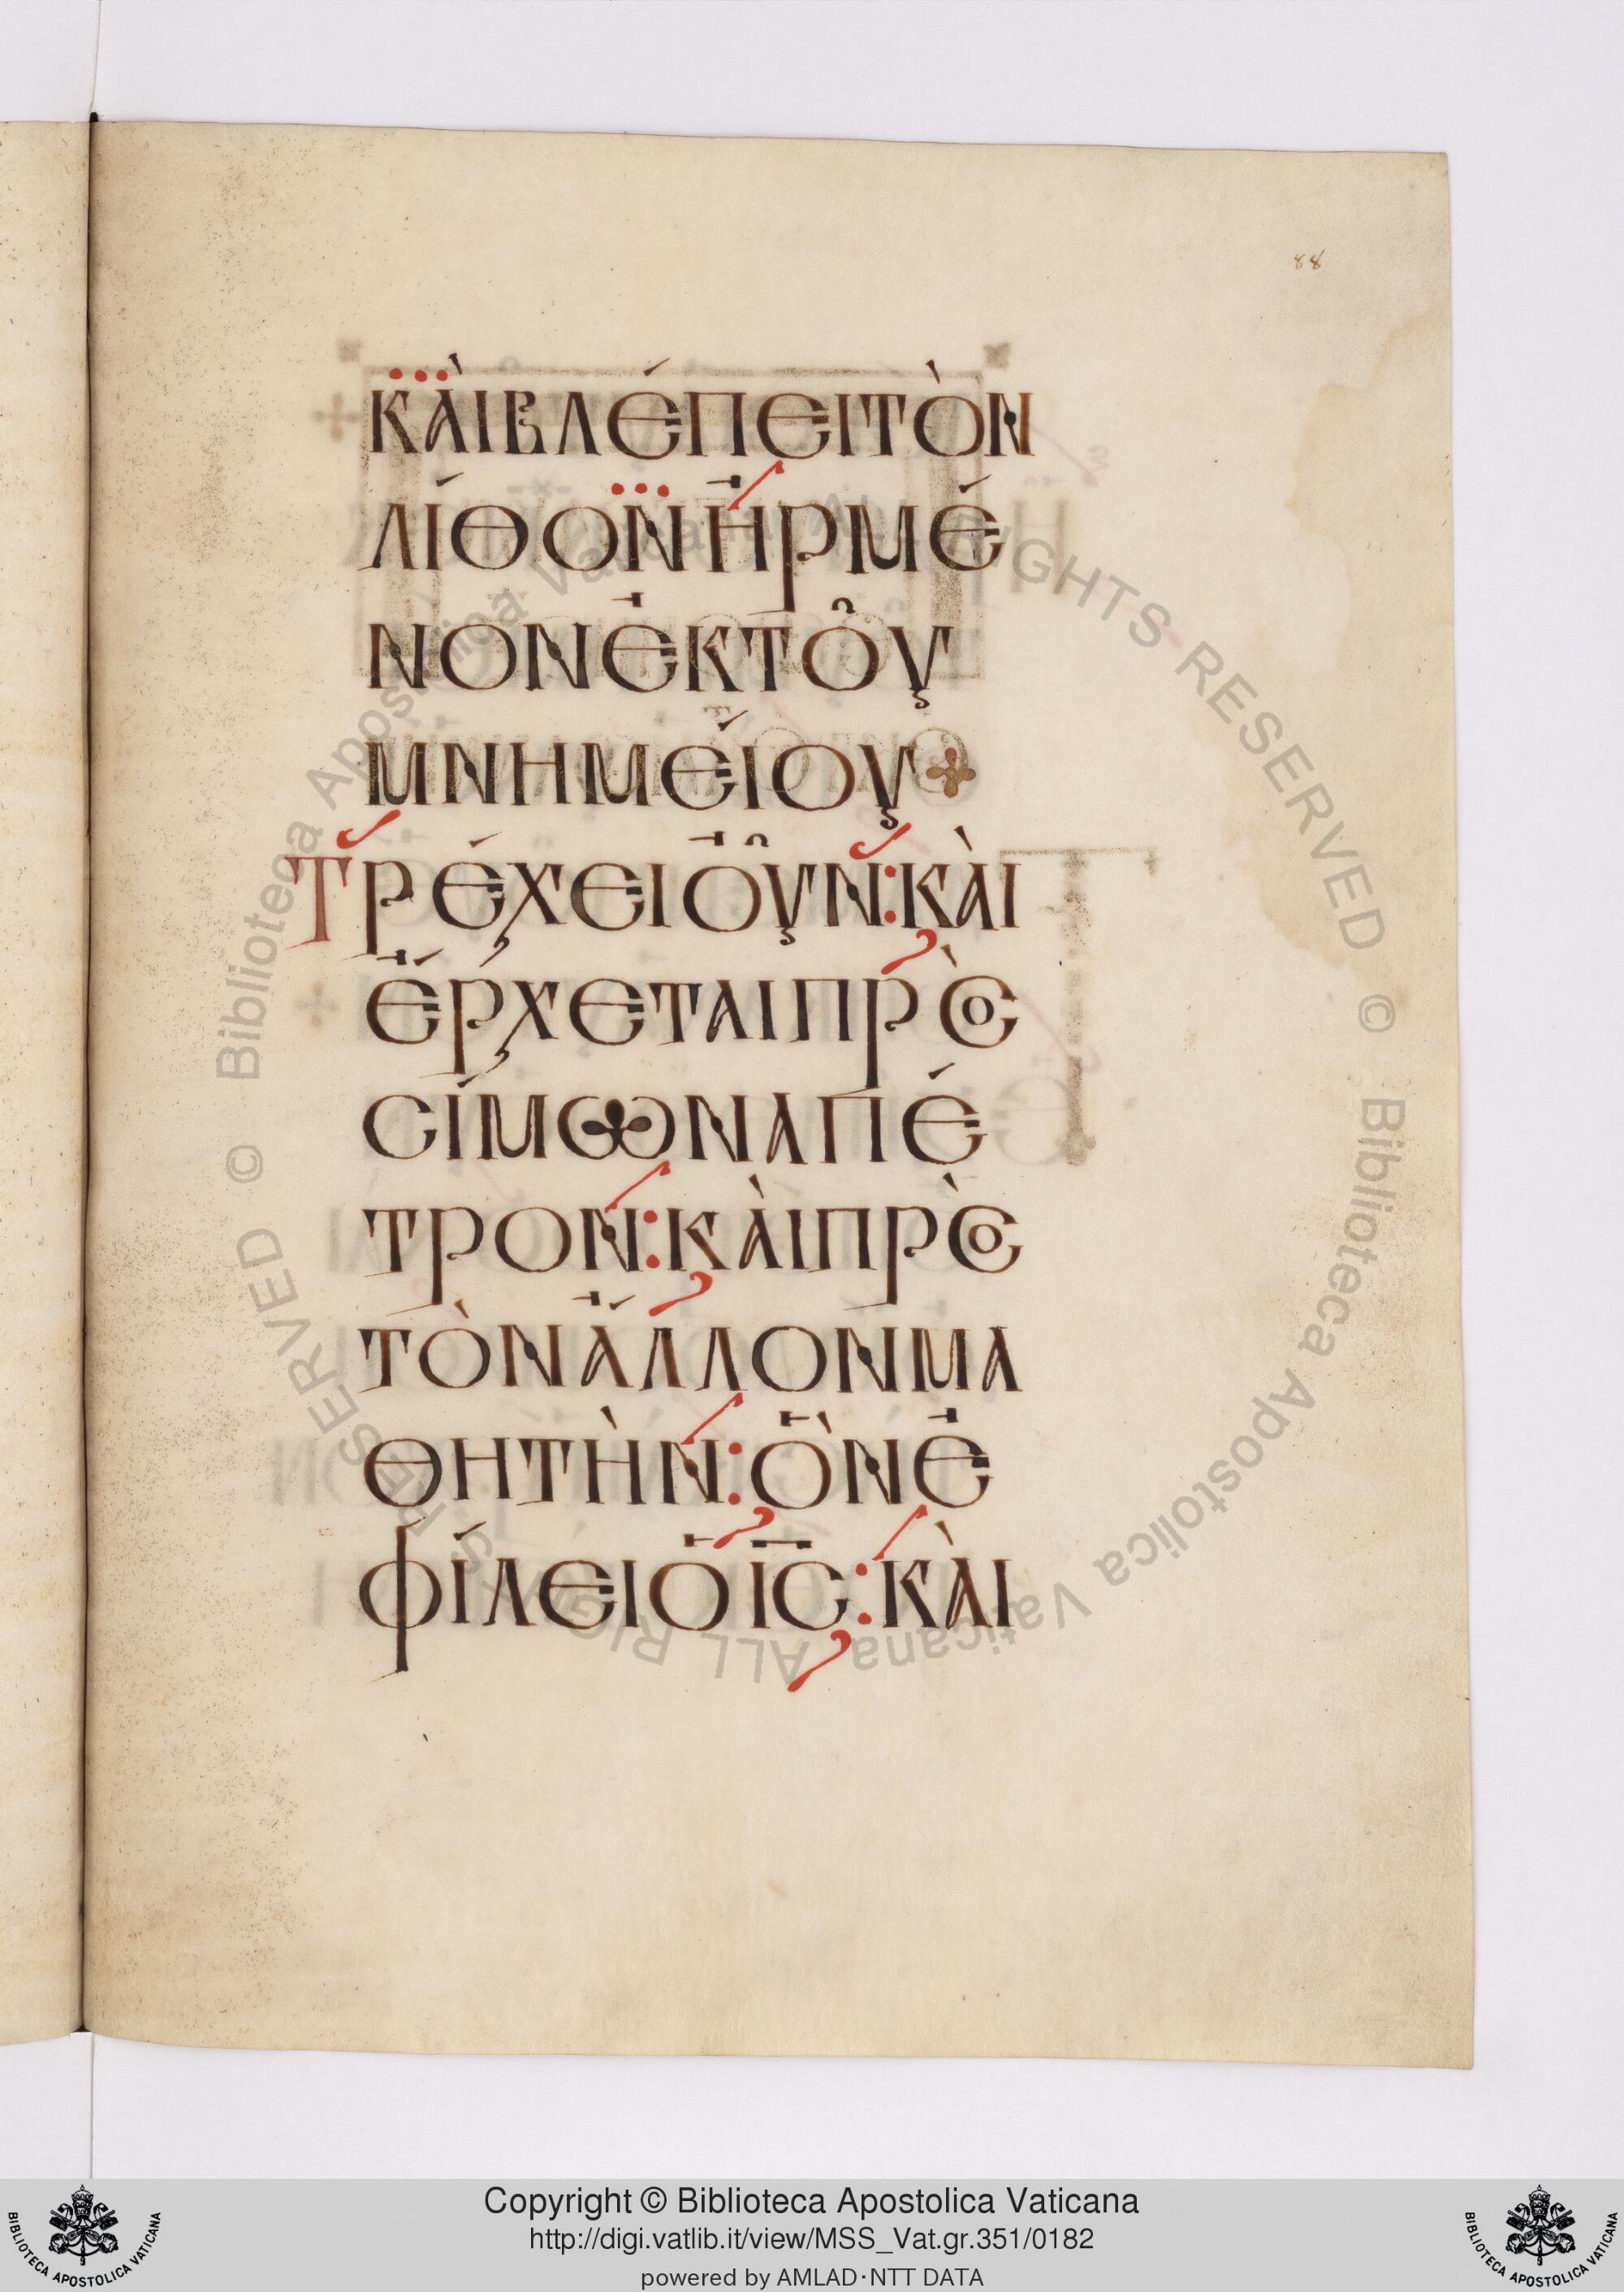 88
ΚᾺΙΒΛΈΠΕΙΤῸΝ
ΛΊΘΟΝἨΡΜΈ
ΝΟΝἘΚΤΟ͂Υ
ΜΝΗΜΕΊΟΥ
ΤΡΈΧΕΙὈ͂ΥΝ:ΚᾺΙ
ἜΡΧΕΤΑΙΠΡῸϹ
ϹΊΜΩΝΑΠΈ
ΤΡΟΝ:ΚᾺΙΠΡῸϹ
ΤῸΝἌΛΛΟΝΜΑ
ΘΗΤῊΝ:ὋΝἘ
ΦΊΛΕΙὉΙ̅Ϲ̅:ΚᾺΙ
© Biblioteca Apostolica Vaticana ALL RIGHTS RESERVED © Biblioteca Apostolica Vaticana ALL RIGHTS RESERVED
BIBLIOTECA APOSTOLICA VATICANA
Copyright © Biblioteca Apostolica Vaticana
http://digi.vatlib.it/view/MSS_Vat.gr.351/0182
powered by AMLAD·NTT DATA
BIBLIOTECA APOSTOLICA VATICANA